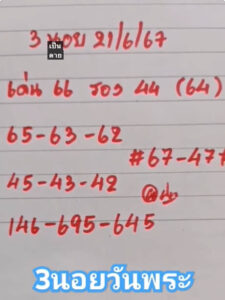 3 นอย 21/6/67
เป็น
ตาย
เด่น 66 รอง 44 (64)
65-63-62
#67-47#
45-43-42
146-695-645
3นอยวันพระ